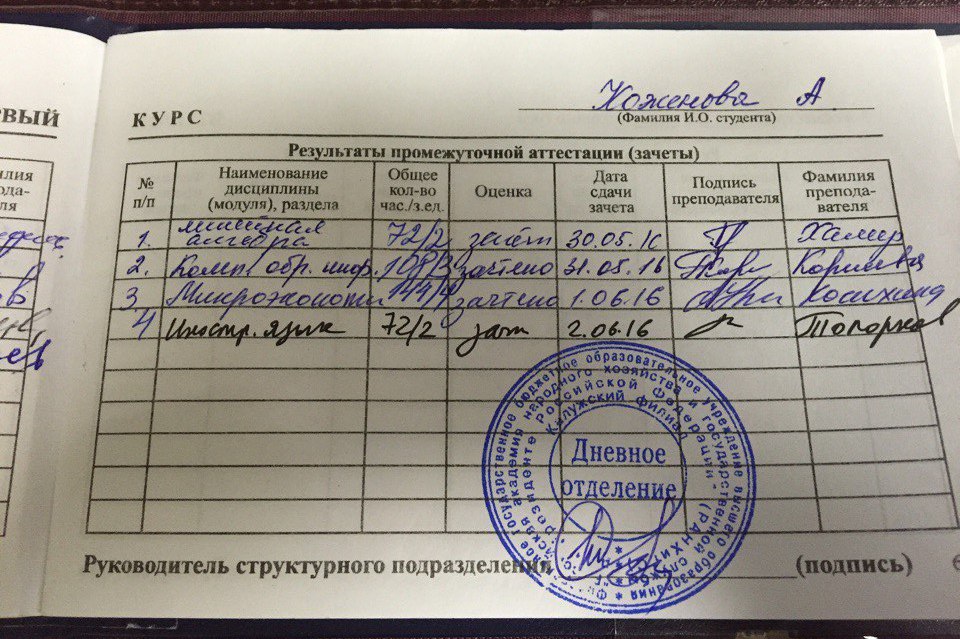 РВЫЙ
КУРС
Коженова А.
(Фамилия И.О. студента)
Результаты промежуточной аттестации (зачеты)
№ п/п
Наименование дисциплины (модуля), раздела
Общее кол-во час./з.ед.
Оценка
Дата сдачи зачета
Подпись преподавателя
Фамилия препода-вателя
1. Линейная алгебра 72/2 зачёт 30.05.16
2. Комп. обр. инф. 108/3 зачтено 31.05.16
3 144/4 зачтено 1.06.16
4 Иностр. язык 72/2 зач 2.06.16 Топорков
государственное бюджетное образовательное учреждение высшего образования
академия народного хозяйства и государственной службы
при Президенте Российской Федерации
Калужский филиал
Дневное
отделение
Руководитель структурного подразделения (подпись)